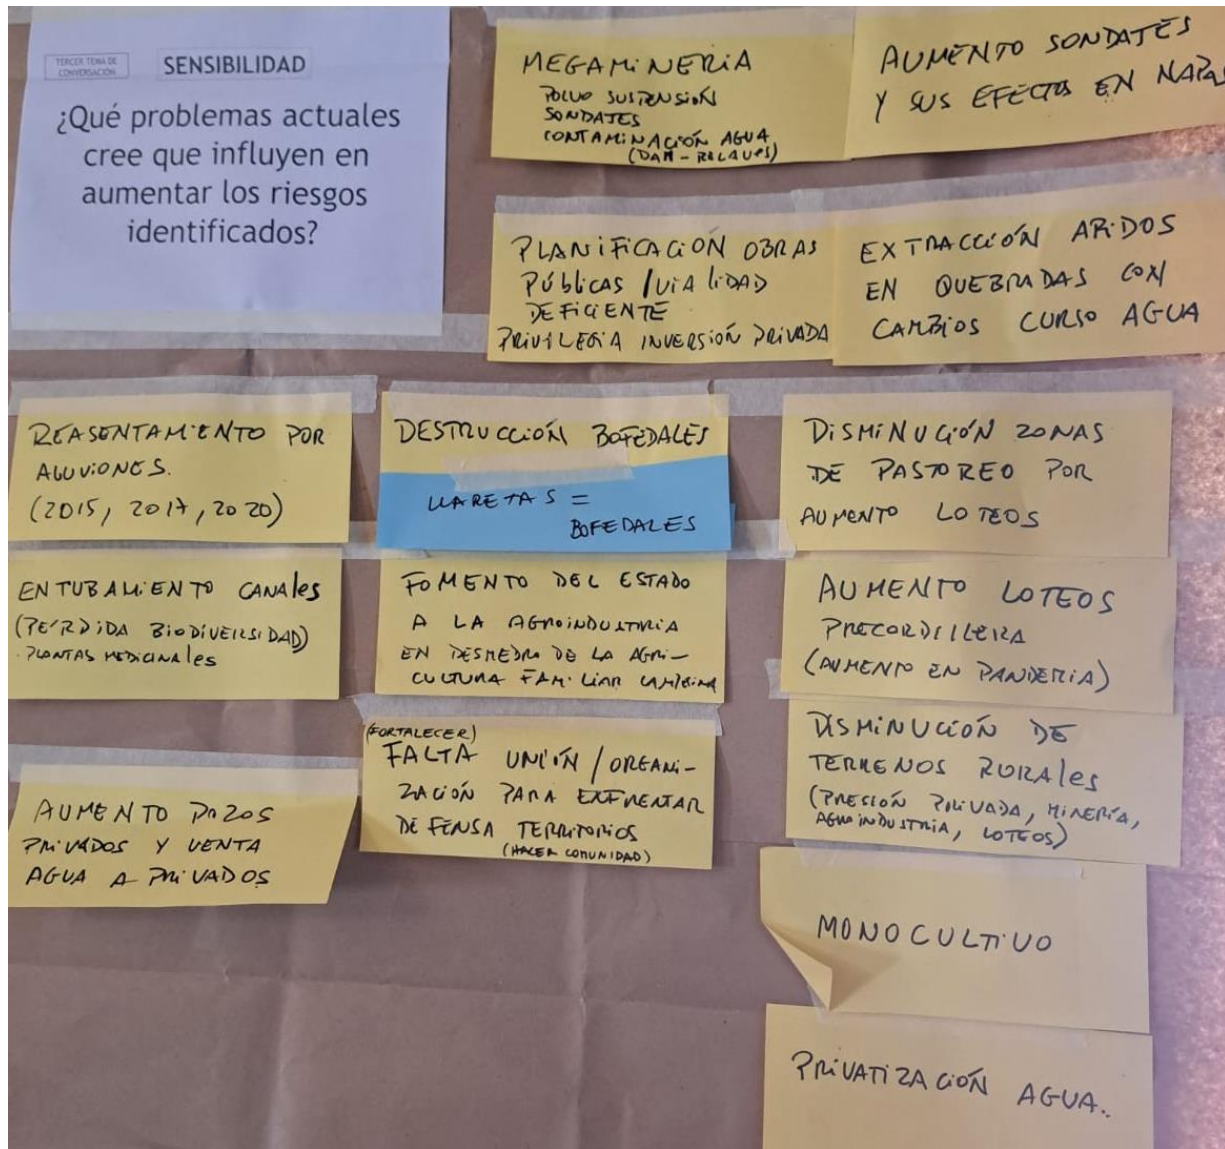 TERCER TEMA DE
CONVERSACIÓN
SENSIBILIDAD
¿Qué problemas actuales
cree que influyen en
aumentar los riesgos
identificados?
MEGAMINERIA
POLVO SUSPENSIÓN
SONDATES
CONTAMINACIÓN AGUA
(DAM - RELAVES)
AUMENTO SONDATES
Y SUS EFECTOS EN NAPAS
PLANIFICACIÓN OBRAS
PÚBLICAS / VIALIDAD
DEFICIENTE
PRIVILEGIA INVERSIÓN PRIVADA
EXTRACCIÓN ARIDOS
EN QUEBRADAS CON
CAMBIOS CURSO AGUA
REASENTAMIENTO POR
ALUVIONES.
(2015, 2017, 2020)
DESTRUCCIÓN BOFEDALES
LLARETAS =
BOFEDALES
DISMINUCIÓN ZONAS
DE PASTOREO POR
AUMENTO LOTEOS
ENTUBAMIENTO CANALES
(PÉRDIDA BIODIVERSIDAD)
. PLANTAS MEDICINALES
FOMENTO DEL ESTADO
A LA AGROINDUSTRIA
EN DESMEDRO DE LA AGRI-
CULTURA FAMILIAR CAMPESINA
AUMENTO LOTEOS
PRECORDILLERA
(AUMENTO EN PANDEMIA)
AUMENTO POZOS
PRIVADOS Y VENTA
AGUA A PRIVADOS
(FORTALECER)
FALTA UNIÓN / ORGANI-
ZACIÓN PARA ENFRENTAR
DEFENSA TERRITORIOS
(HACER COMUNIDAD)
DISMINUCIÓN DE
TERRENOS RURALES
(PRESIÓN PRIVADA, MINERÍA,
AGROINDUSTRIA, LOTEOS)
MONOCULTIVO
PRIVATIZACIÓN AGUA.